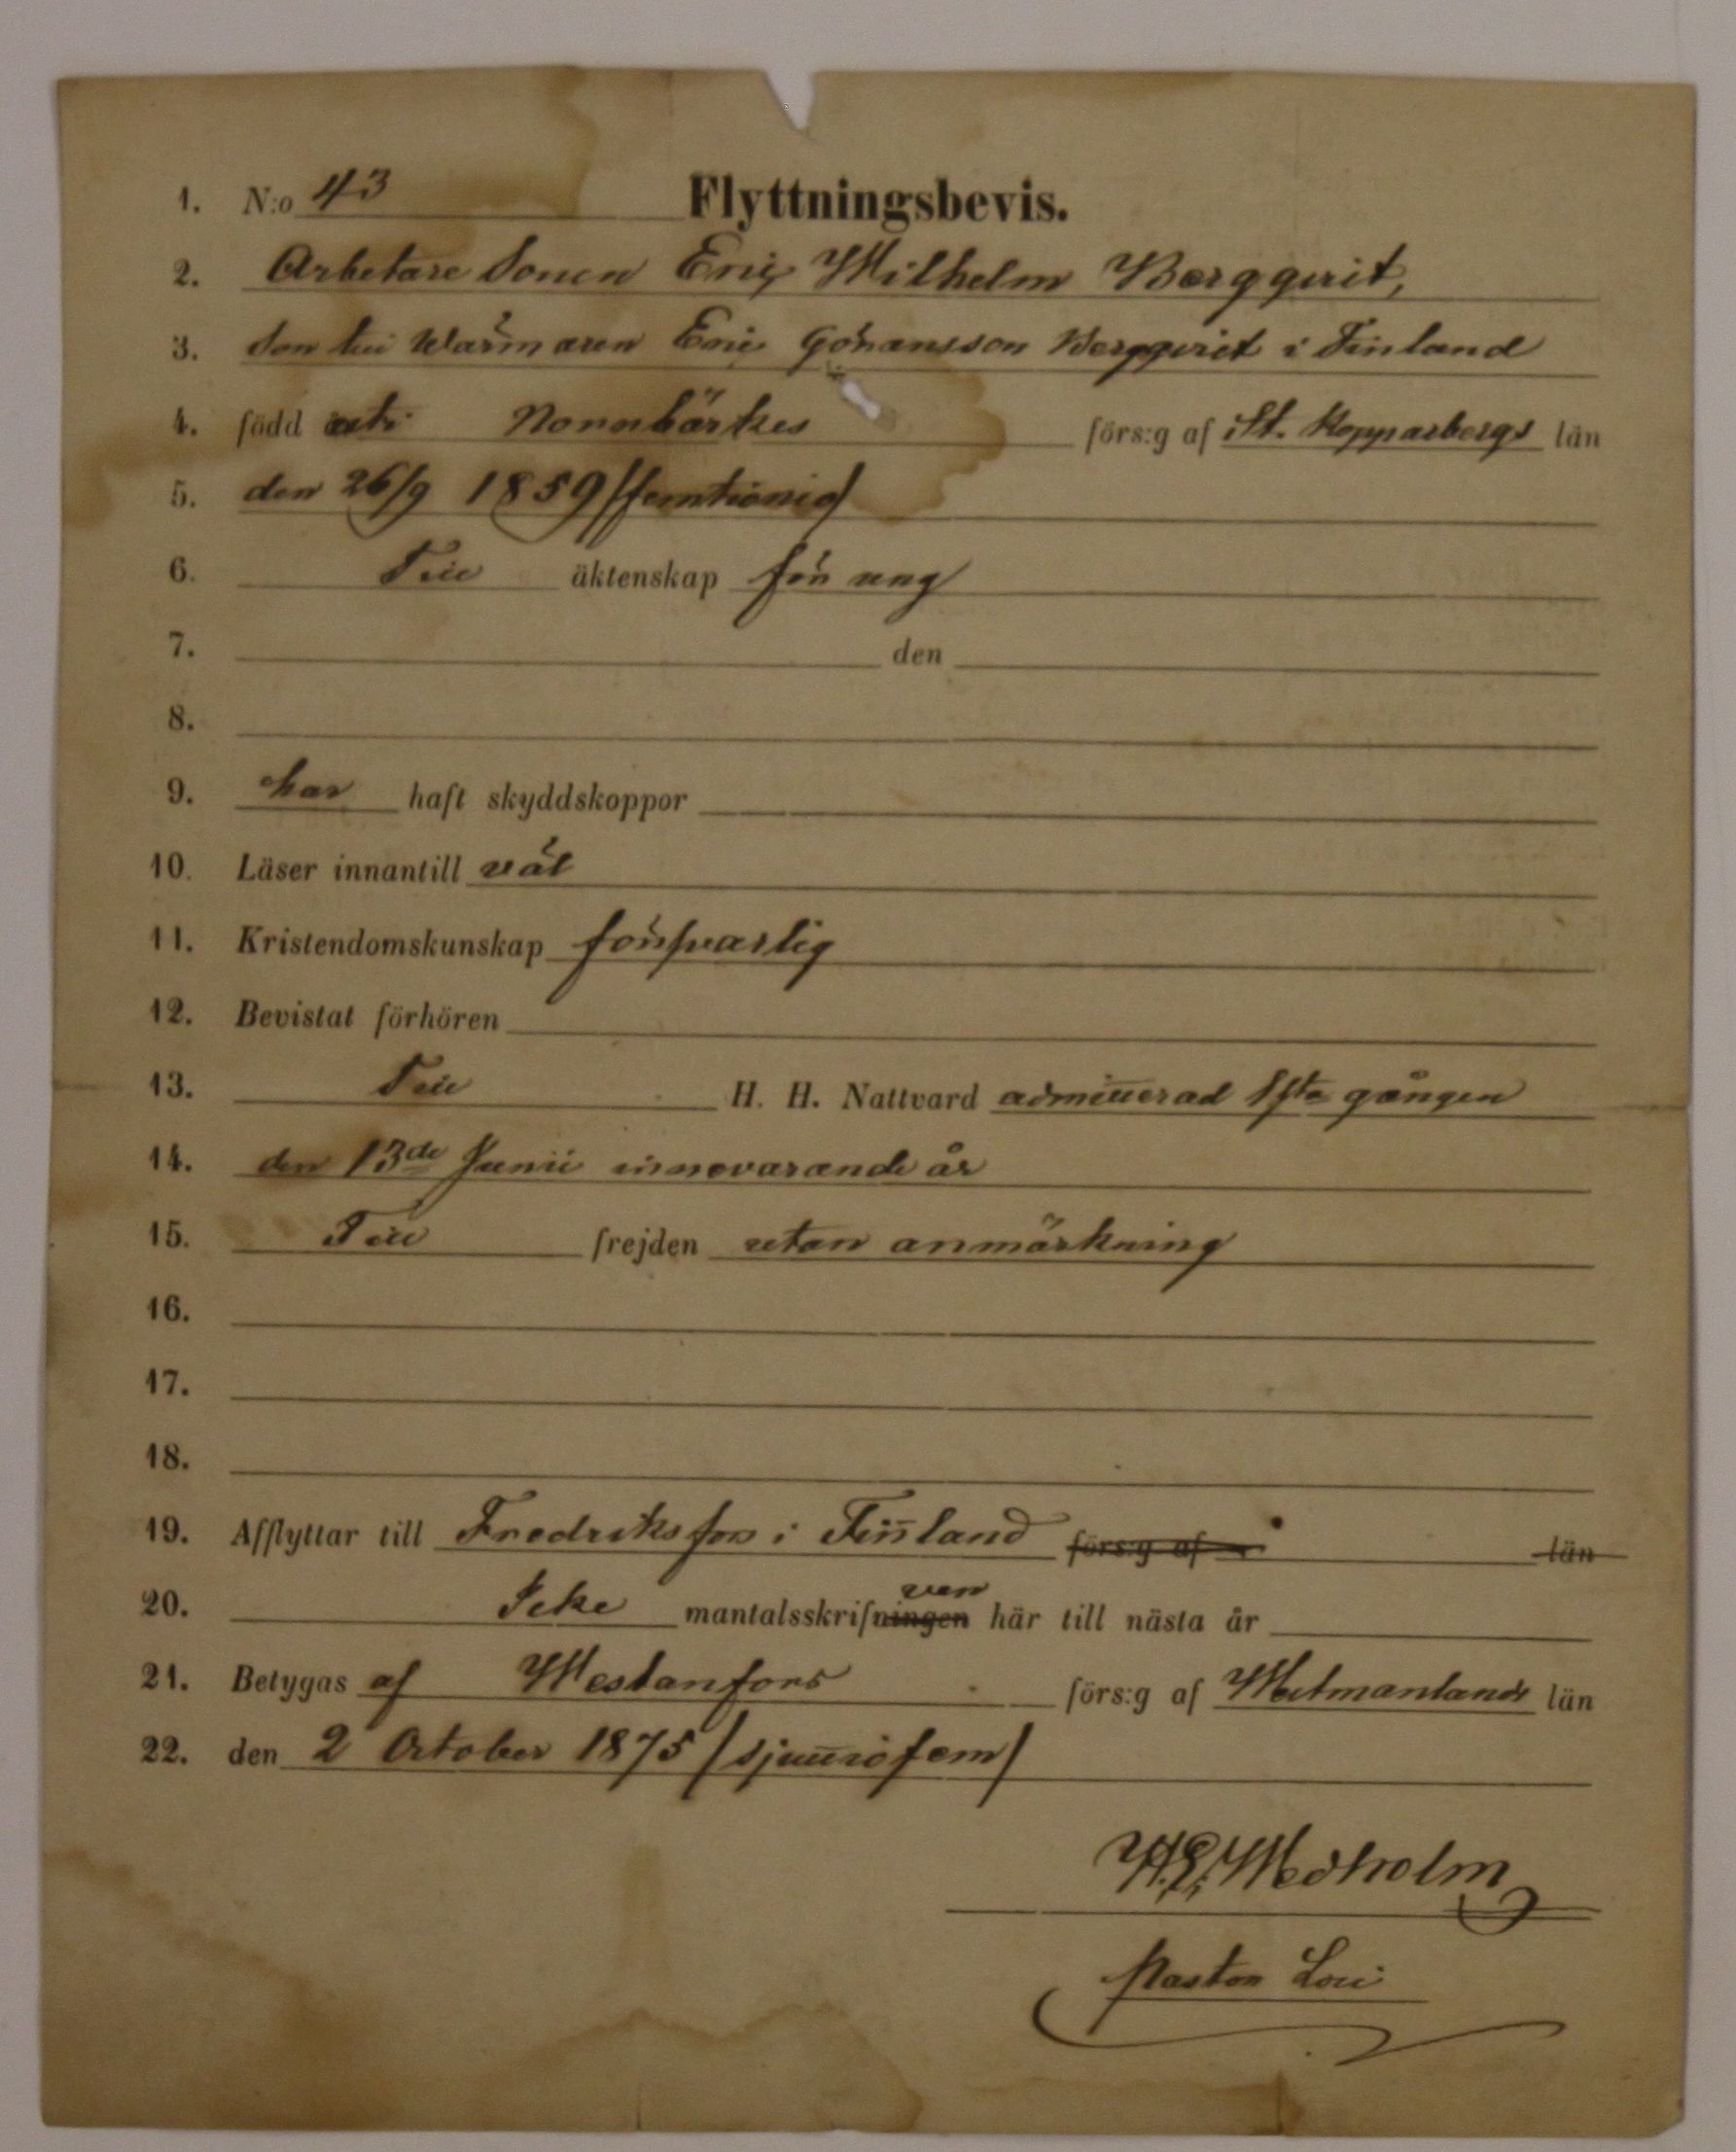 1. N:o 43 Flyttningsbevis.
2. Arbetare Sonen Eric Wilhelm Bergqvist,
3. Son till Wärmaren Eric Göransson Bergqvist i Finland
4. född uti Norrbärkes förs:g af St. Kopparbergs län
5. den 26/9 1859 /femtionio/
6. Till äktenskap för ung
7. den
8.
9. har haft skyddskoppor
10. Läser innantill väl
11. Kristendomskunskap försvarlig
12. Bevistat förhören
13. Till H. H. Nattvard admitterad 1sta gången
14. den 13de Junii innevarande år
15. Till frejden utan anmärkning
16.
17.
18.
19. Afflyttar till Fredriksfors i Finland förs:g af län
20. Icke mantalsskrifningen ven här till nästa år
21. Betygas af Westanfors förs:g af Westmanlands län
22. den 2 October 1875 /sjuttiofem/
Wedholm
Pastor Loci